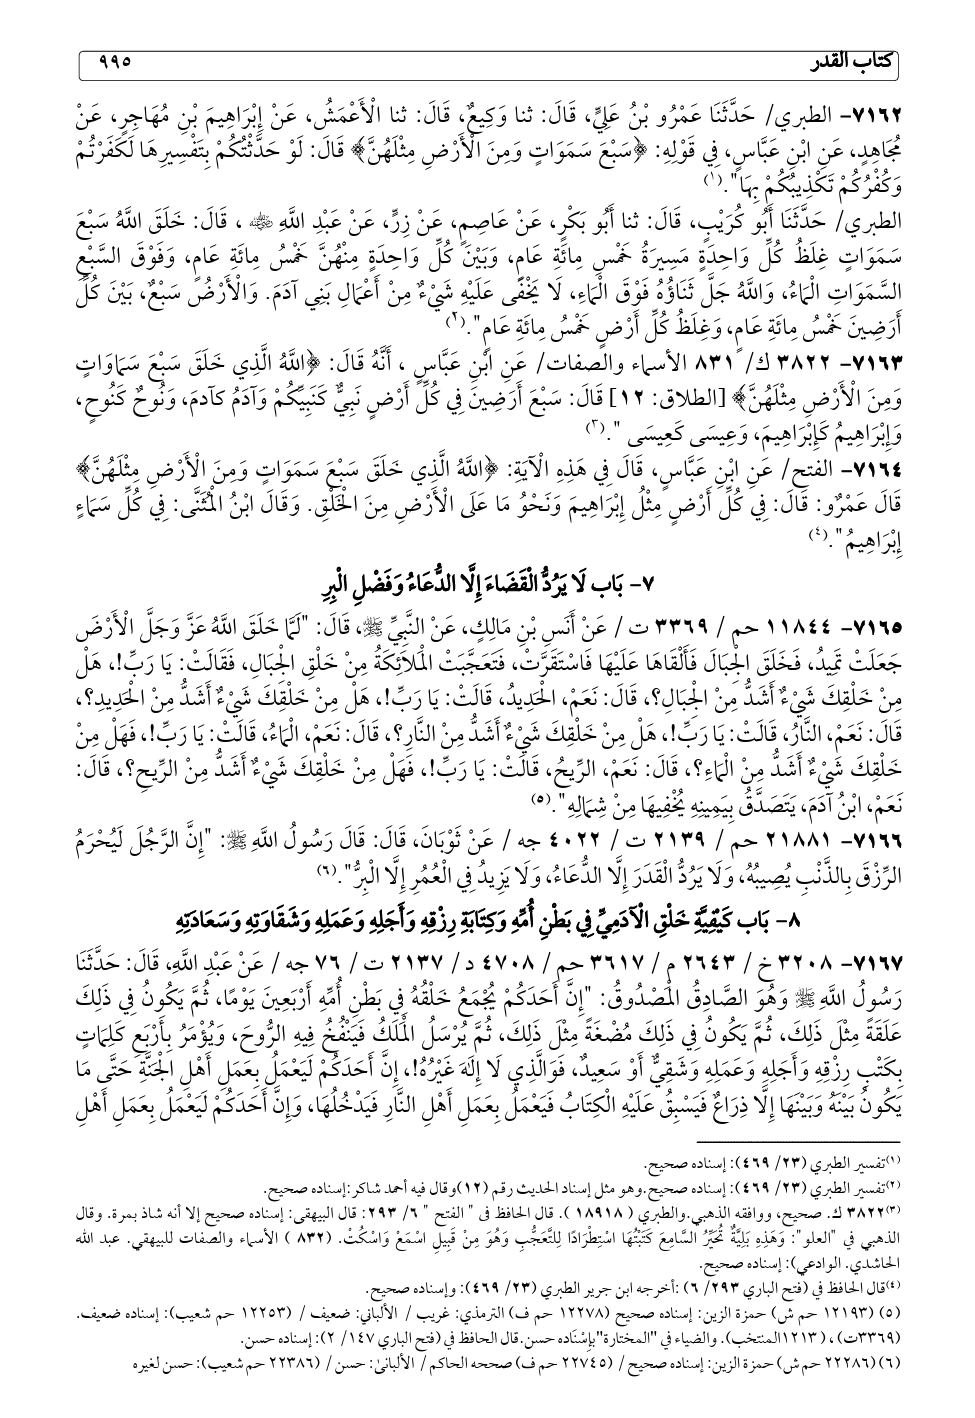 كتاب القدر ٩٩٥
٧١٦٢- الطبري/ حَدَّثَنَا عَمْرُو بْنُ عَلِيٍّ، قَالَ: ثنا وَكِيعٌ، قَالَ: ثنا الْأَعْمَشُ، عَنْ إِبْرَاهِيمَ بْنِ مُهَاجِرٍ، عَنْ
مُجَاهِدٍ، عَنِ ابْنِ عَبَّاسٍ، فِي قَوْلِهِ: ﴿سَبْعَ سَمَوَاتٍ وَمِنَ الْأَرْضِ مِثْلَهُنَّ﴾ قَالَ: لَوْ حَدَّثْتُكُمْ بِتَفْسِيرِهَا لَكَفَرْتُمْ
وَكُفْرُكُمْ تَكْذِيبُكُمْ بِهَا".(١)
الطبري/ حَدَّثَنَا أَبُو كُرَيْبٍ، قَالَ: ثنا أَبُو بَكْرٍ، عَنْ عَاصِمٍ، عَنْ زِرٍّ، عَنْ عَبْدِ اللَّهِ ﷺ ، قَالَ: خَلَقَ اللَّهُ سَبْعَ
سَمَوَاتٍ غِلَظُ كُلِّ وَاحِدَةٍ مَسِيرَةُ خَمْسِ مِائَةِ عَامٍ، وَبَيْنَ كُلِّ وَاحِدَةٍ مِنْهُنَّ خَمْسُ مِائَةِ عَامٍ، وَفَوْقَ السَّبْعِ
السَّمَوَاتِ الْمَاءُ، وَاللَّهُ جَلَّ ثَنَاؤُهُ فَوْقَ الْمَاءِ، لَا يَخْفَى عَلَيْهِ شَيْءٌ مِنْ أَعْمَالِ بَنِي آدَمَ. وَالْأَرْضُ سَبْعٌ، بَيْنَ كُلِّ
أَرَضِينَ خَمْسُ مِائَةِ عَامٍ، وَغِلَظُ كُلِّ أَرْضٍ خَمْسُ مِائَةِ عَامٍ".(٢)
٧١٦٣- ٣٨٢٢ ك/ ٨٣١ الأسماء والصفات/ عَنِ ابْنِ عَبَّاسٍ ، أَنَّهُ قَالَ: ﴿اللَّهُ الَّذِي خَلَقَ سَبْعَ سَمَاوَاتٍ
وَمِنَ الْأَرْضِ مِثْلَهُنَّ﴾ [الطلاق: ١٢] قَالَ: سَبْعَ أَرَضِينَ فِي كُلِّ أَرْضٍ نَبِيٌّ كَنَبِيِّكُمْ وَآدَمُ كآدمَ، وَنُوحٌ كَنُوحٍ،
وَإِبْرَاهِيمُ كَإِبْرَاهِيمَ، وَعِيسَى كَعِيسَى ".(٣)
٧١٦٤- الفتح/ عَنِ ابْنِ عَبَّاسٍ، قَالَ فِي هَذِهِ الْآيَةِ: ﴿اللَّهُ الَّذِي خَلَقَ سَبْعَ سَمَوَاتٍ وَمِنَ الْأَرْضِ مِثْلَهُنَّ﴾
قَالَ عَمْرٌو: قَالَ: فِي كُلِّ أَرْضٍ مِثْلُ إِبْرَاهِيمَ وَنَحْوُ مَا عَلَى الْأَرْضِ مِنَ الْخَلْقِ. وَقَالَ ابْنُ الْمُثَنَّى: فِي كُلِّ سَمَاءٍ
إِبْرَاهِيمُ".(٤)
٧- بَاب لَا يَرُدُّ الْقَضَاءَ إِلَّا الدُّعَاءُ وَفَضْلِ الْبِرِ
٧١٦٥- ١١٨٤٤ حم / ٣٣٦٩ ت / عَنْ أَنَسِ بْنِ مَالِكٍ، عَنِ النَّبِيِّ ﷺ، قَالَ: "لَمَّا خَلَقَ اللَّهُ عَزَّ وَجَلَّ الْأَرْضَ
جَعَلَتْ تَمِيدُ، فَخَلَقَ الْجِبَالَ فَأَلْقَاهَا عَلَيْهَا فَاسْتَقَرَّتْ، فَتَعَجَّبَتْ الْمَلَائِكَةُ مِنْ خَلْقِ الْجِبَالِ، فَقَالَتْ: يَا رَبِّ!، هَلْ
مِنْ خَلْقِكَ شَيْءٌ أَشَدُّ مِنْ الْجِبَالِ؟، قَالَ: نَعَمْ، الْحَدِيدُ، قَالَتْ: يَا رَبِّ!، هَلْ مِنْ خَلْقِكَ شَيْءٌ أَشَدُّ مِنْ الْحَدِيدِ؟،
قَالَ: نَعَمْ، النَّارُ، قَالَتْ: يَا رَبِّ!، هَلْ مِنْ خَلْقِكَ شَيْءٌ أَشَدُّ مِنْ النَّارِ؟، قَالَ: نَعَمْ، الْمَاءُ، قَالَتْ: يَا رَبِّ!، فَهَلْ مِنْ
خَلْقِكَ شَيْءٌ أَشَدُّ مِنْ الْمَاءِ؟، قَالَ: نَعَمْ، الرِّيحُ، قَالَتْ: يَا رَبِّ!، فَهَلْ مِنْ خَلْقِكَ شَيْءٌ أَشَدُّ مِنْ الرِّيحِ؟، قَالَ:
نَعَمْ، ابْنُ آدَمَ، يَتَصَدَّقُ بِيَمِينِهِ يُخْفِيهَا مِنْ شِمَالِهِ".(٥)
٧١٦٦- ٢١٨٨١ حم / ٢١٣٩ ت / ٤٠٢٢ جه / عَنْ ثَوْبَانَ، قَالَ: قَالَ رَسُولُ اللَّهِ ﷺ: "إِنَّ الرَّجُلَ لَيُحْرَمُ
الرِّزْقَ بِالذَّنْبِ يُصِيبُهُ، وَلَا يَرُدُّ الْقَدَرَ إِلَّا الدُّعَاءُ، وَلَا يَزِيدُ فِي الْعُمُرِ إِلَّا الْبِرُّ".(٦)
٨- بَاب كَيْفِيَّةِ خَلْقِ الْآدَمِيِّ فِي بَطْنِ أُمِّهِ وَكِتَابَةِ رِزْقِهِ وَأَجَلِهِ وَعَمَلِهِ وَشَقَاوَتِهِ وَسَعَادَتِهِ
٧١٦٧- ٣٢٠٨ خ / ٢٦٤٣ م / ٣٦١٧ حم / ٤٧٠٨ د/ ٢١٣٧ ت / ٧٦ جه / عَنْ عَبْدِ اللَّهِ، قَالَ: حَدَّثَنَا
رَسُولُ اللَّهِ ﷺ وَهُوَ الصَّادِقُ الْمَصْدُوقُ: "إِنَّ أَحَدَكُمْ يُجْمَعُ خَلْقُهُ فِي بَطْنِ أُمِّهِ أَرْبَعِينَ يَوْمًا، ثُمَّ يَكُونُ فِي ذَلِكَ
عَلَقَةً مِثْلَ ذَلِكَ، ثُمَّ يَكُونُ فِي ذَلِكَ مُضْغَةً مِثْلَ ذَلِكَ، ثُمَّ يُرْسَلُ الْمَلَكُ فَيَنْفُخُ فِيهِ الرُّوحَ، وَيُؤْمَرُ بِأَرْبَعِ كَلِمَاتٍ
بِكَتْبِ رِزْقِهِ وَأَجَلِهِ وَعَمَلِهِ وَشَقِيٌّ أَوْ سَعِيدٌ، فَوَالَّذِي لَا إِلَهَ غَيْرُهُ!، إِنَّ أَحَدَكُمْ لَيَعْمَلُ بِعَمَلِ أَهْلِ الْجَنَّةِ حَتَّى مَا
يَكُونُ بَيْنَهُ وَبَيْنَهَا إِلَّا ذِرَاعٌ فَيَسْبِقُ عَلَيْهِ الْكِتَابُ فَيَعْمَلُ بِعَمَلِ أَهْلِ النَّارِ فَيَدْخُلُهَا، وَإِنَّ أَحَدَكُمْ لَيَعْمَلُ بِعَمَلِ أَهْلِ
(١)تفسير الطبري (٢٣/ ٤٦٩): إسناده صحيح.
(٢)تفسير الطبري (٢٣/ ٤٦٩): إسناده صحيح.وهو مثل إسناد الحديث رقم (١٢)وقال فيه أحمد شاكر:إسناده صحيح.
(٣)٣٨٢٢ ك. صحيح، ووافقه الذهبي.والطبري ( ١٨٩١٨ ). قال الحافظ فى " الفتح " ٦/ ٢٩٣: قال البيهقى: إسناده صحيح إلا أنه شاذ بمرة. وقال
الذهبي في "العلو": وَهَذِهِ بَلِيَّةٌ تُحَيِّرُ السَّامِعَ كَتَبْتُهَا اسْتِطْرَادًا لِلتَّعَجُّبِ وَهُوَ مِنْ قَبِيلِ اسْمَعْ وَاسْكُتْ. (٨٣٢ ) الأسماء والصفات للبيهقي. عبد الله
الحاشدي. الوادعي): إسناده صحيح.
(٤)قال الحافظ في (فتح الباري ٢٩٣/ ٦) :أخرجه ابن جرير الطبري (٢٣/ ٤٦٩): وإسناده صحيح.
(٥) (١٢١٩٣ حم ش) حمزة الزين: إسناده صحيح (١٢٢٧٨ حم ف) الترمذي: غريب / الألباني: ضعيف / (١٢٢٥٣ حم شعيب): إسناده ضعيف.
(٣٣٦٩ت) ، (١٢١٣المنتخب). والضياء في "المختارة"بإِسْنَاده حسن.قال الحافظ في (فتح الباري ١٤٧/ ٢): إسناده حسن.
(٦) (٢٢٢٨٦ حم ش) حمزة الزين: إسناده صحيح / (٢٢٧٤٥ حم ف) صححه الحاكم / الألبانىُ: حسن / (٢٢٣٨٦ حم شعيب): حسن لغيره